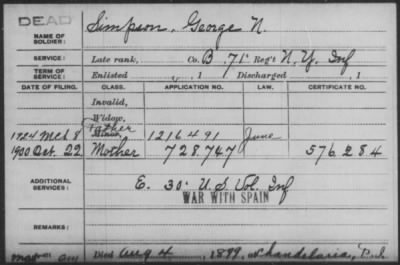 DEAD
NAME OF SOLDIER: Simpson, George N.
SERVICE: Late rank, Co. B. 71" Reg't N. Y. Inf
TERM OF SERVICE: Enlisted , 1 Discharged , 1
DATE OF FILING. CLASS. APPLICATION NO. LAW. CERTIFICATE NO.
Invalid,
Widow,
Father
1924 Mch 8 Minor, 1216491 June
1900 Oct. 22 Mother 728.747 576284
ADDITIONAL SERVICES: E. 30" U.S. Vol. Inf
WAR WITH SPAIN
Died Aug 4, 1899, at Candelaria, P.I.